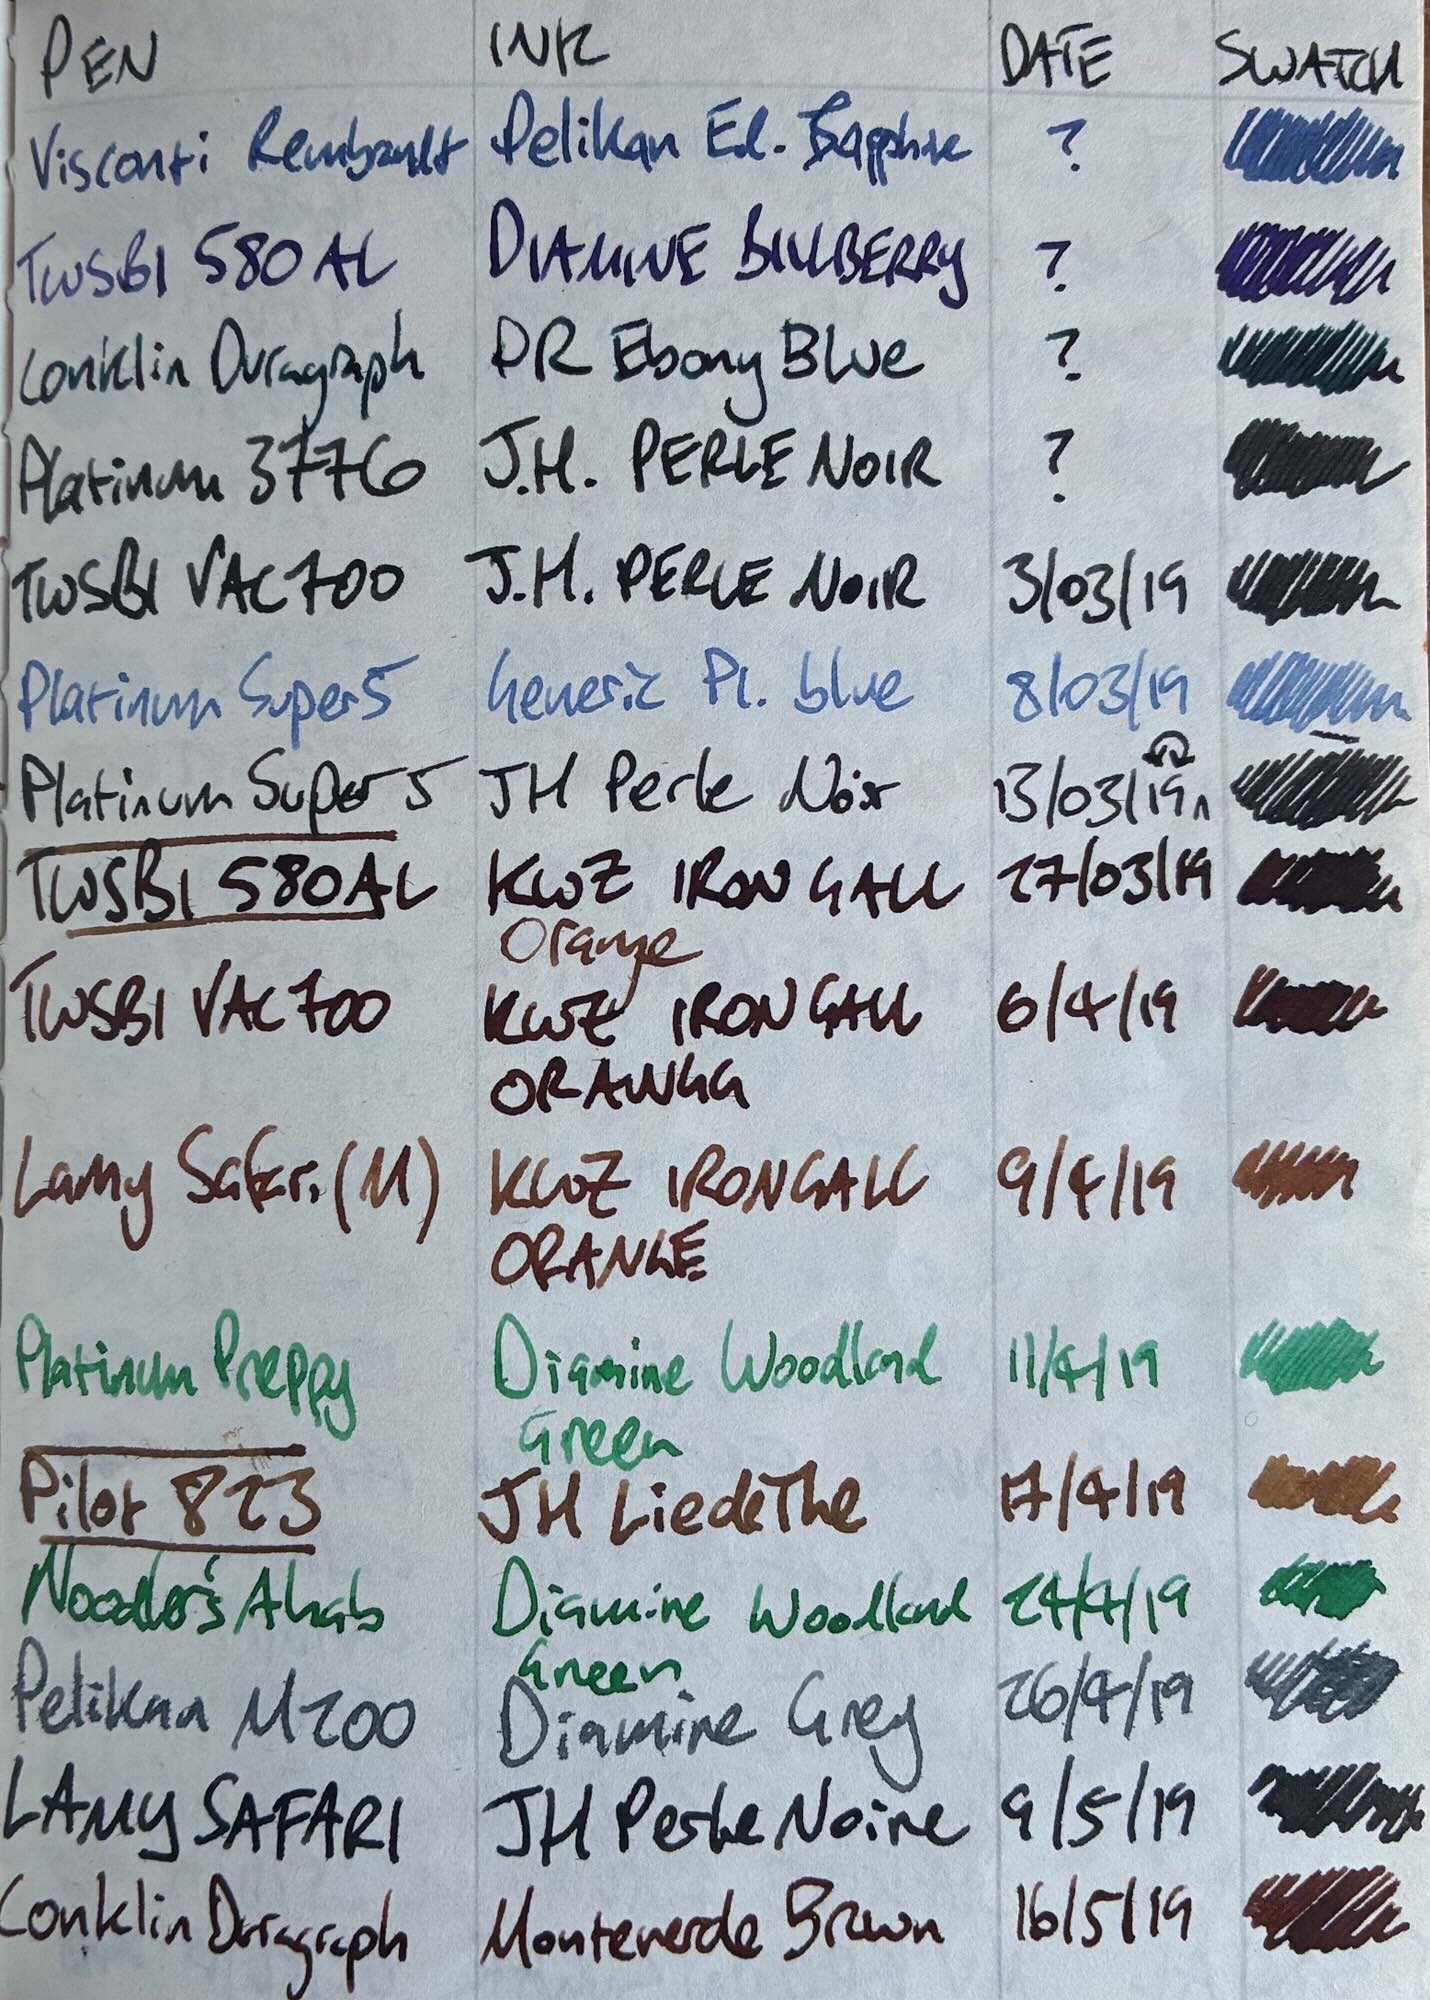 PEN INK DATE SWATCH
Visconti Rembrandt Pelikan Ed. Sapphire ?
TWSBI 580 AL DIAMINE BILLBERRY ?
Conklin Duragraph DR Ebony Blue ?
Platinum 3776 J.H. PERLE NOIR ?
TWSBI VAC700 J.H. PERLE NOIR 3/03/19
Platinum Super5 Generic Pl. blue 8/03/19
Platinum Super 5 JH Perle Noir 13/03/19
TWSBI 580AL KWZ IRON GALL 27/03/19
Orange
TWSBI VAC700 KWZ IRON GALL 6/4/19
ORANGG
Lamy Safari (M) KWZ IRON GALL 9/4/19
ORANGE
Platinum Preppy Diamine Woodland 11/4/19
Green
Pilot 823 JH LiedeThe 17/4/19
Noodler's Ahab Diamine Woodland 24/4/19
Green
Pelikan M200 Diamine Grey 26/4/19
LAMY SAFARI JH Perle Noire 9/5/19
Conklin Duragraph Monteverde Brown 16/5/19